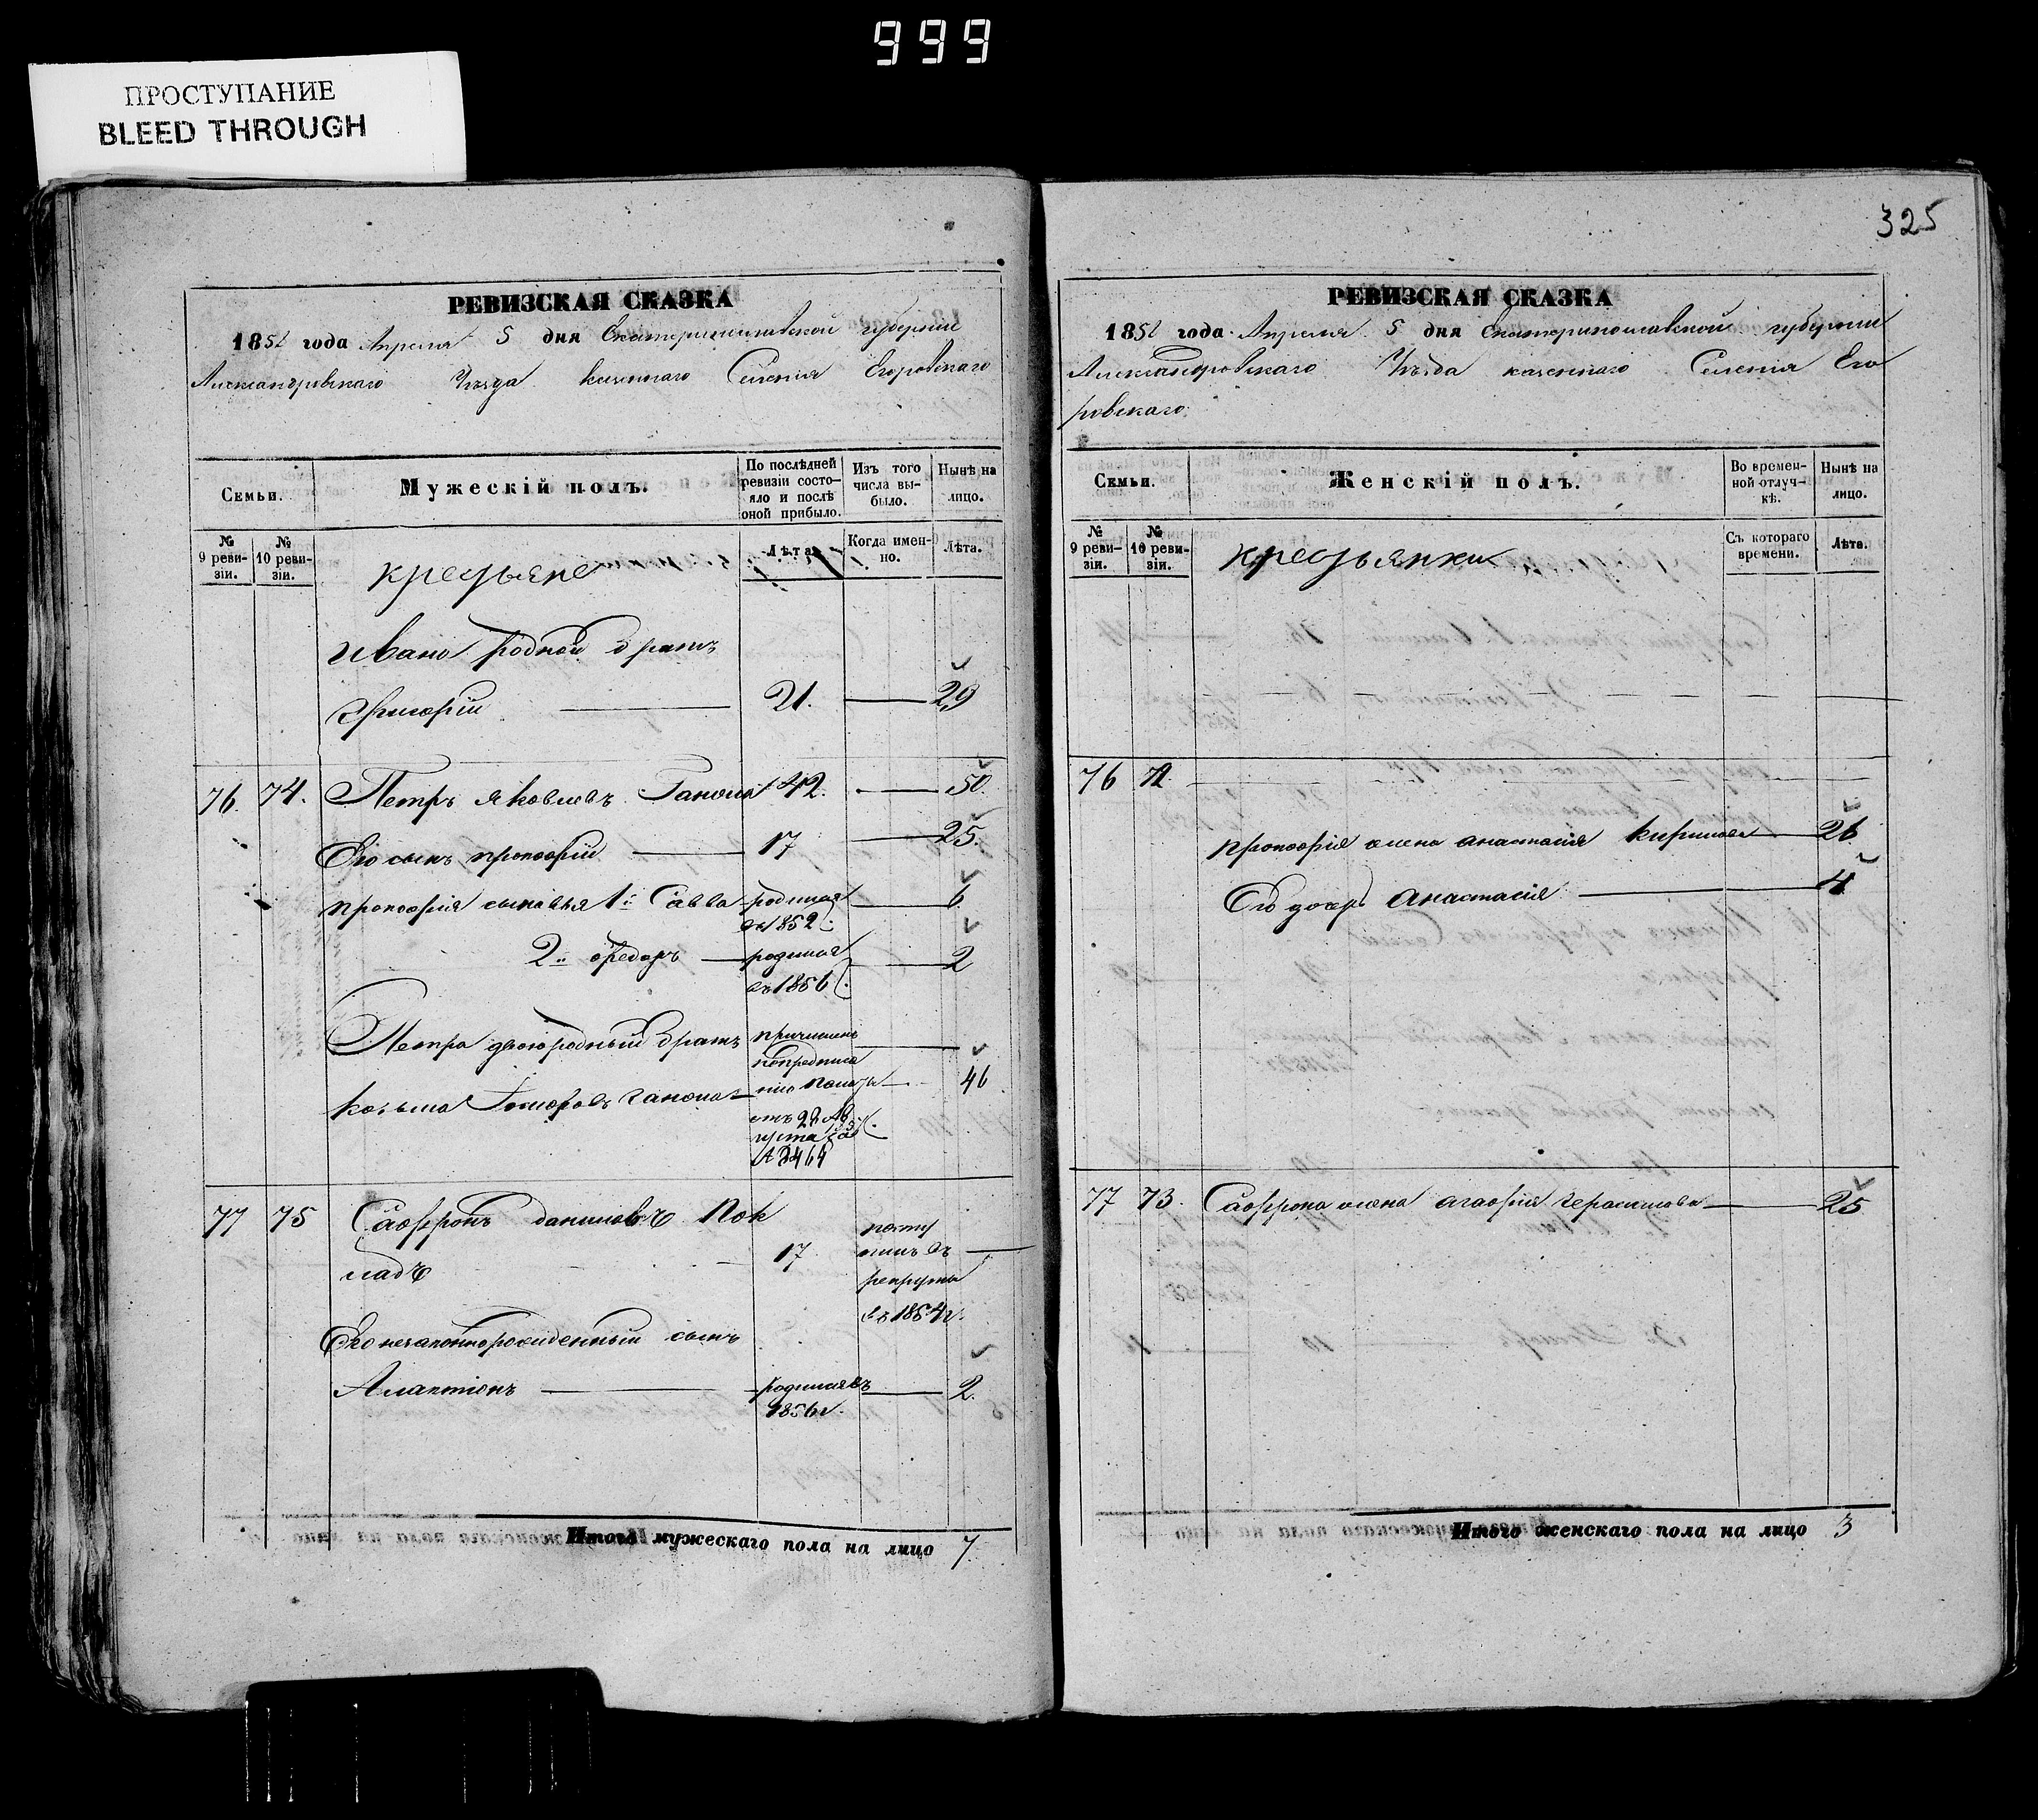 999
ПРОСТУПАНИЕ
BLEED THROUGH
РЕВИЗСКАЯ СКАЗКА
1858 года Апреля 5 дня Екатеринославской губернии
Александровскаго Уезда казеннаго Селенія Егоровскаго
Семьи.
Мужескій полъ.
По послѣдней ревизіи состо-
яло и послѣ
оной прибыло.
Изъ того
числа вы-
было.
Нынѣ на
лицо.
№
9 реви-
зіи.
№
10 реви-
зіи.
Лѣта.
Когда имен-
но.
Лѣта.
крестьяне
Ивана родной братъ
Григорій 21. 29
76. 74. Петръ Яковлевъ Ганоша 42. 50.
Его сынъ прокофій 17 25.
прокофія сыновья 1й Савва родился 6
въ 1852
2й Федоръ родился 2
въ 1856
Петра двоюродный братъ причисленъ
по предписа
козьма ганоша нію Палаты 46
отъ 28 Ав
густа
№ 8464
77 75 Сафронъ даниловъ Пок
ладъ 17
посту
пилъ въ
рекруты
въ 1854г.
Его незаконнорожденный сынъ
родился въ 2.
1856г.
Итого мужескаго пола на лицо 7
325
РЕВИЗСКАЯ СКАЗКА
1858 года Апреля 5 дня Екатеринославской губерніи
Александровскаго Уѣзда казеннаго Селенія Его
ровскаго
Семьи.
Женскій полъ.
Во времен-
ной отлуч-
кѣ.
Нынѣ на
лицо.
№
9 реви-
зіи.
№
10 реви-
зіи.
Съ котораго
времени.
Лѣта.
крестьянки
76
прокофія жена анастасія 26
Его дочь Анастасія 4
77 73. Сафрона жена агафія герасимова 25
Итого женскаго пола на лицо 3